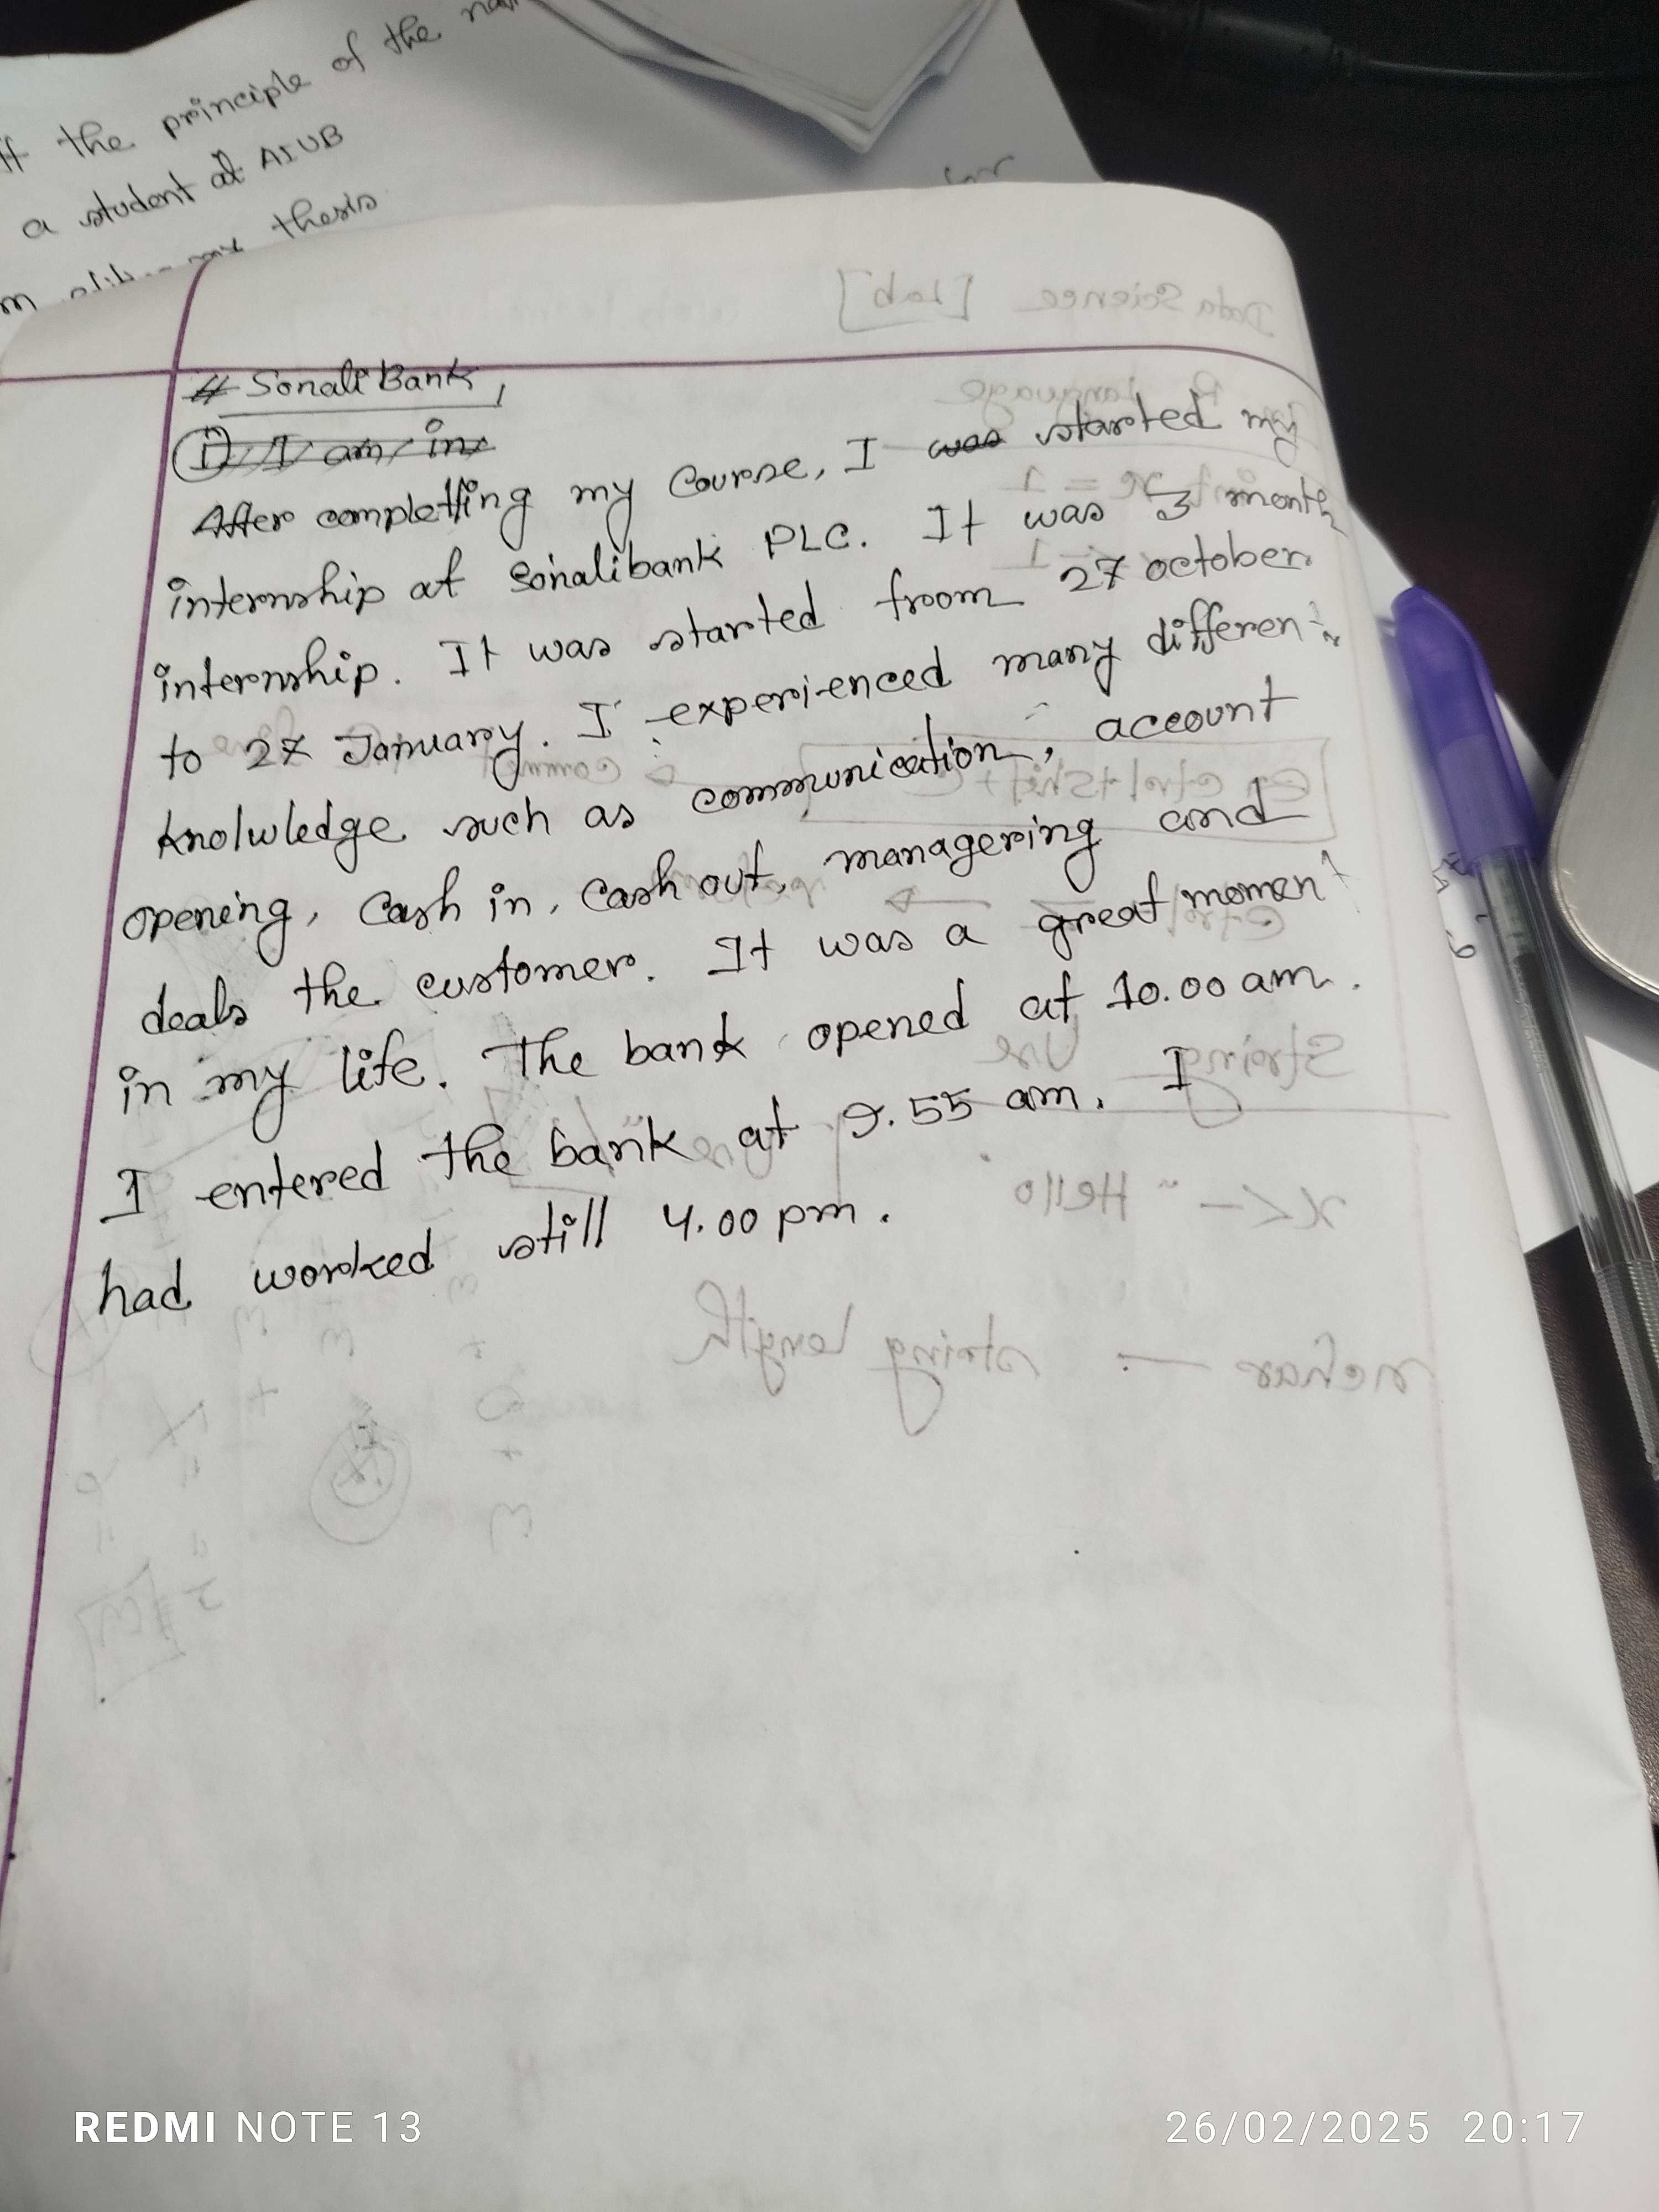 the principle of the
a student at AIUB
thesis
Data Science [lab]
# Sonali Bank,
i) I am in
After completting my course, I was started my
internship at Sonalibank PLC. It was 3 month
internship. It was started froom 27 october
to 27 January. I experienced many different
knolwledge such as communication, account
opening, cash in, cash out, managering and
deals the customer. It was a great moment
in my life. The bank opened at 10.00 am.
I entered the bank at 9.55 am. I
had worked still 4.00 pm.
Language
String Use
x <- "Hello
nchar — string length
REDMI NOTE 13
26/02/2025 20:17